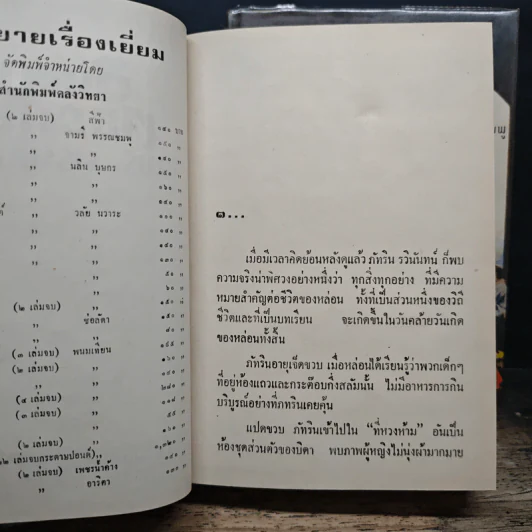 ยายเรื่องเยี่ยม
จัดพิมพ์จำหน่ายโดย
สำนักพิมพ์คลังวิทยา
(๒ เล่มจบ) สีฟ้า ๑๔๐ บาท
” อามรี พรรณชมพู
” ” ๑๔๐ ”
” นลิน บุษกร ๑๔๐ ”
” ” ๑๖๐ ”
” ” ๑๔๐ ”
วลัย นวาระ ๑๐๐ ”
(๒ เล่มจบ) ” ๑๕๐ ”
” ช่อลัดา
(๓ เล่มจบ) พนมเทียน ๑๖๐ ”
(๒ เล่มจบ) ”
(๔ เล่มจบ) ”
(๓ เล่มจบ) ”
(๒ เล่มจบ) ”
๒ เล่มจบกระดาษปอนด์) ”
(๒ เล่มจบ) เพชรน้ำค้าง
” อาริตา ๑๓๐ ”
๑...
เมื่อมีเวลาคิดย้อนหลังดูแล้ว ภัทริน รวินันทน์ ก็พบ
ความจริงน่าพิศวงอย่างหนึ่งว่า ทุกสิ่งทุกอย่าง ที่มีความ
หมายสำคัญต่อชีวิตของหล่อน ทั้งที่เป็นส่วนหนึ่งของวิถี
ชีวิตและที่เป็นบทเรียน จะเกิดขึ้นในวันคล้ายวันเกิด
ของหล่อนทั้งสิ้น
ภัทรินอายุเจ็ดขวบ เมื่อหล่อนได้เรียนรู้ว่าพวกเด็กๆ
ที่อยู่ห้องแถวและกระต๊อบกึ่งสลัมนั้น ไม่มีอาหารการกิน
บริบูรณ์อย่างที่ภัทรินเคยคุ้น
แปดขวบ ภัทรินเข้าไปใน “ที่หวงห้าม” อันเป็น
ห้องชุดส่วนตัวของบิดา พบภาพผู้หญิงไม่นุ่งผ้ามากมาย